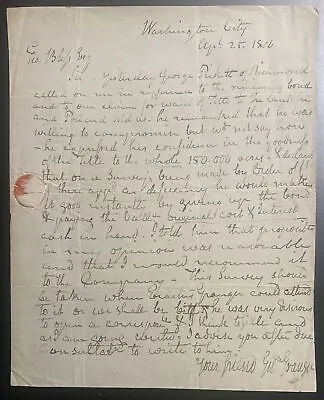 Washington City
Apl 25. 1806.
Geo Bliss Esq
Sir - Yesterday George Pickett of Richmond
called on me in reference to the remaining bond
and to our claim for want of Title to the land he
and Pollard sold us. he remarked that he was
willing to compromise but wd not say how
- he expressed his confidence in the goodness
of the Title to the whole 150.000 acres. & declared
that on a Survey's being made by Order of
there appd a deficiency he would make
it good instantly by giving up the bond
& paying the balle original cost & Interest
cash in hand. I told him that proposition
in my opinion was reasonable
and that I would recommend it
to the Company - This Survey should
be taken when Erastus Granger could attend
to it or we shall be he was very desirous
to open a correspond & I think to the end
as I am going I advise you after due
consultation to write to him.
Your friend Gn Granger